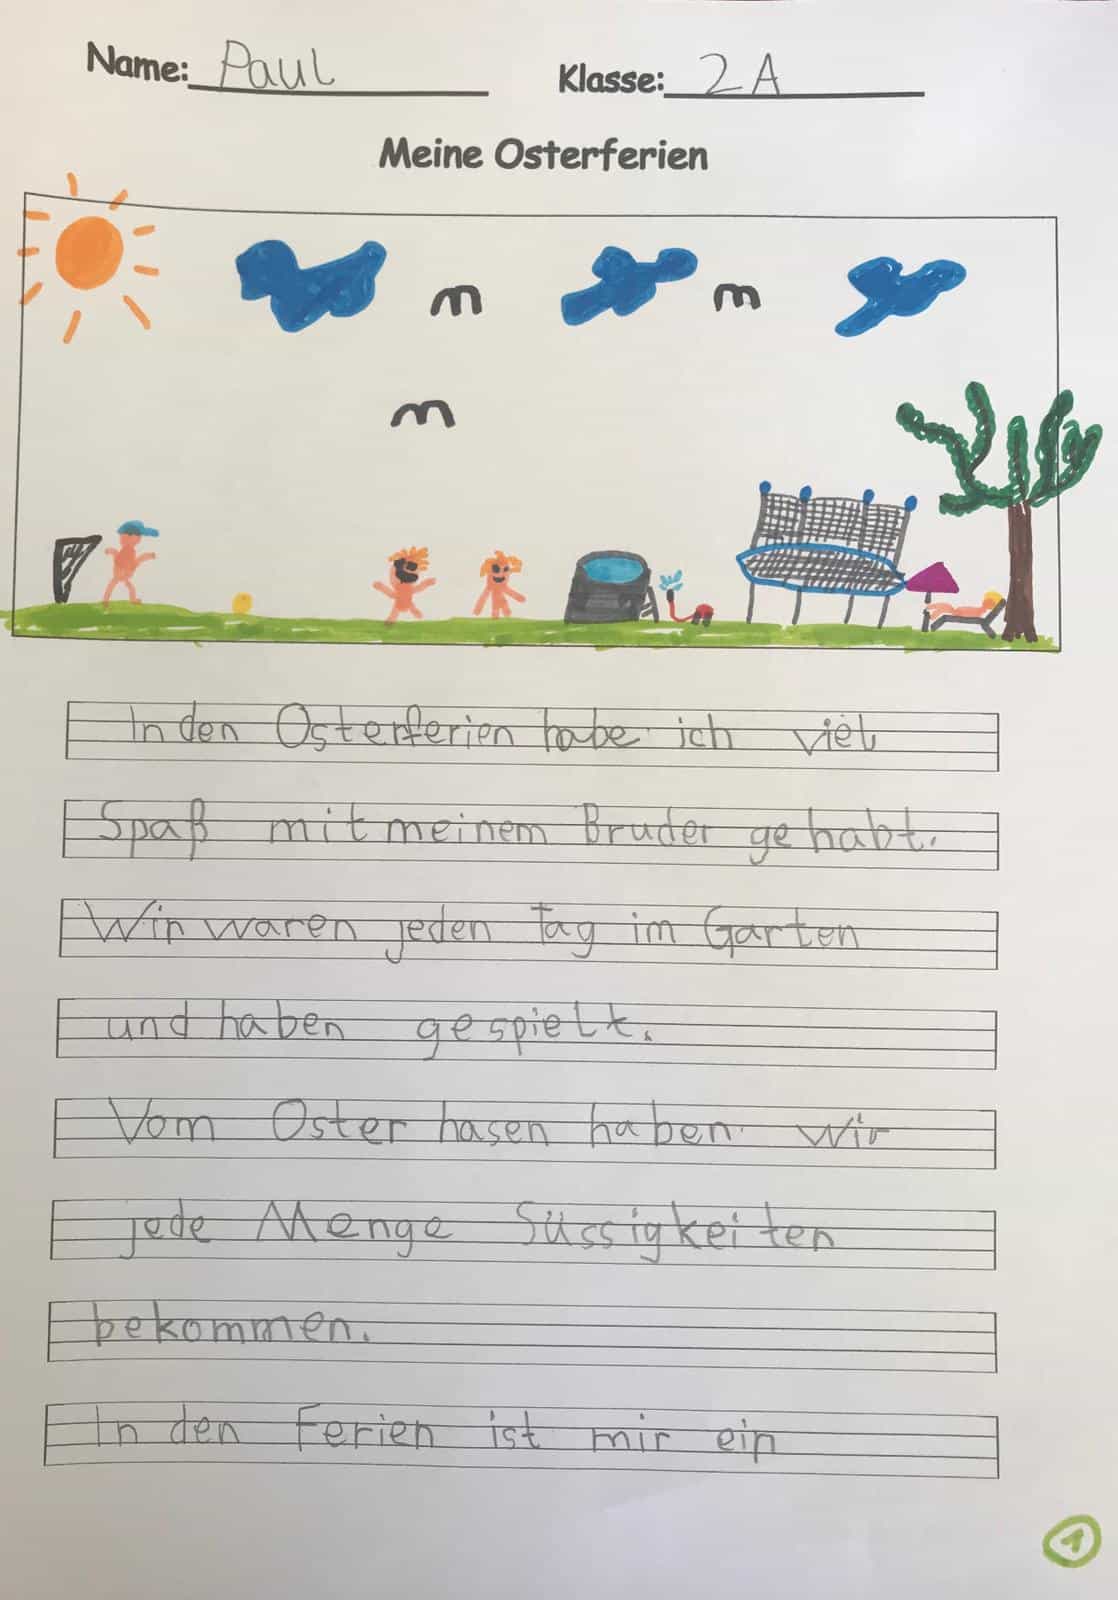 Name: Paul Klasse: 2A
Meine Osterferien
In den Osterferien habe ich viel
Spaß mit meinem Bruder gehabt.
Wir waren jeden Tag im Garten
und haben gespielt.
Vom Osterhasen haben wir
jede Menge Süssigkeiten
bekommen.
In den Ferien ist mir ein
1